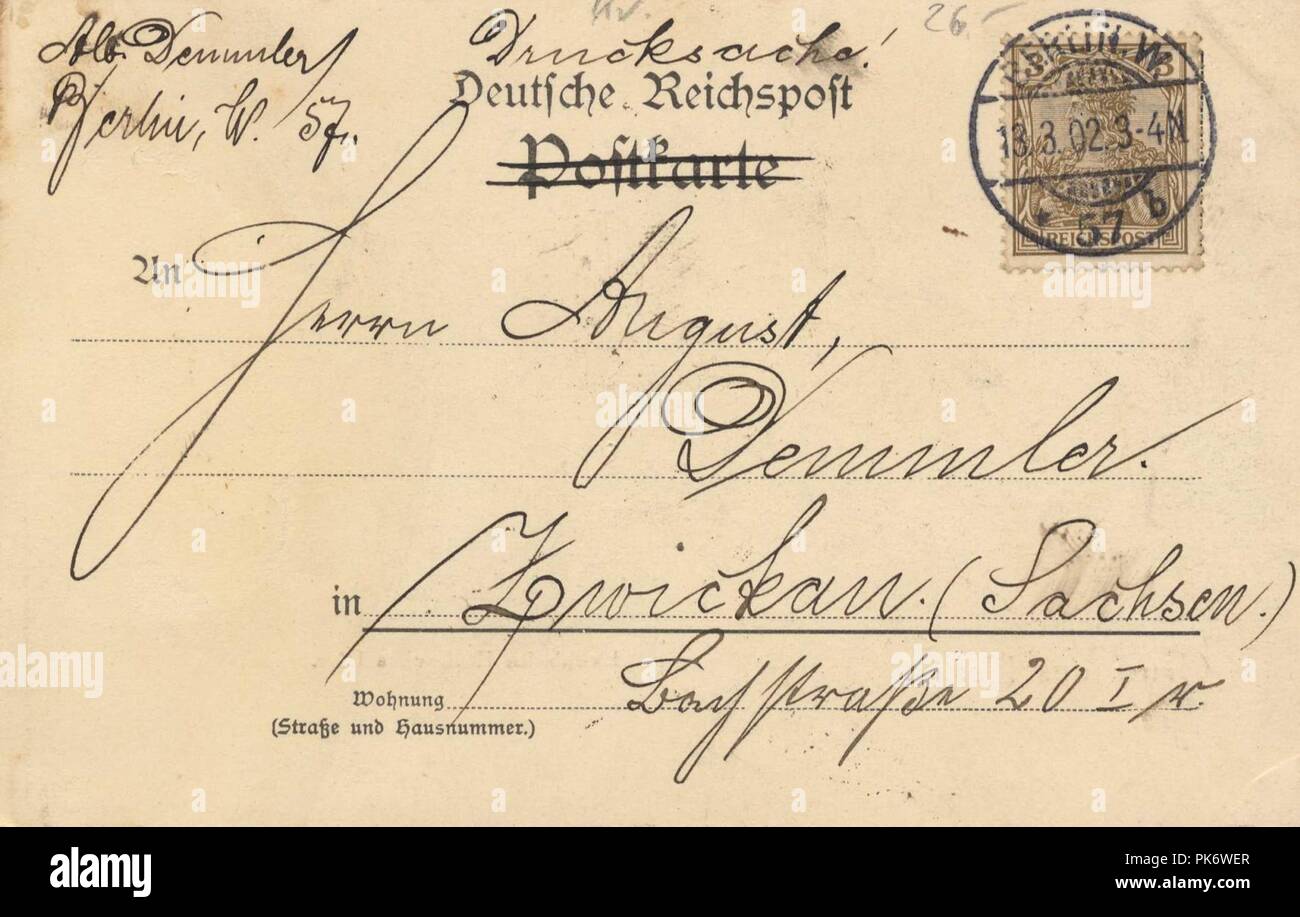 Alb. Demmler
Berlin, W. 57.
Drucksache!
Deutsche Reichspost
Postkarte
26.-
BERLIN, W.
13.3.02.3-4N
* 57 b
3 3
REICHSPOST
An Herrn August,
Demmler.
in Zwickau. (Sachsen.)
Wohnung Bachstraße 20 I r.
(Straße und Hausnummer.)
a alamy
alamy
Image ID: PK6WER
www.alamy.com